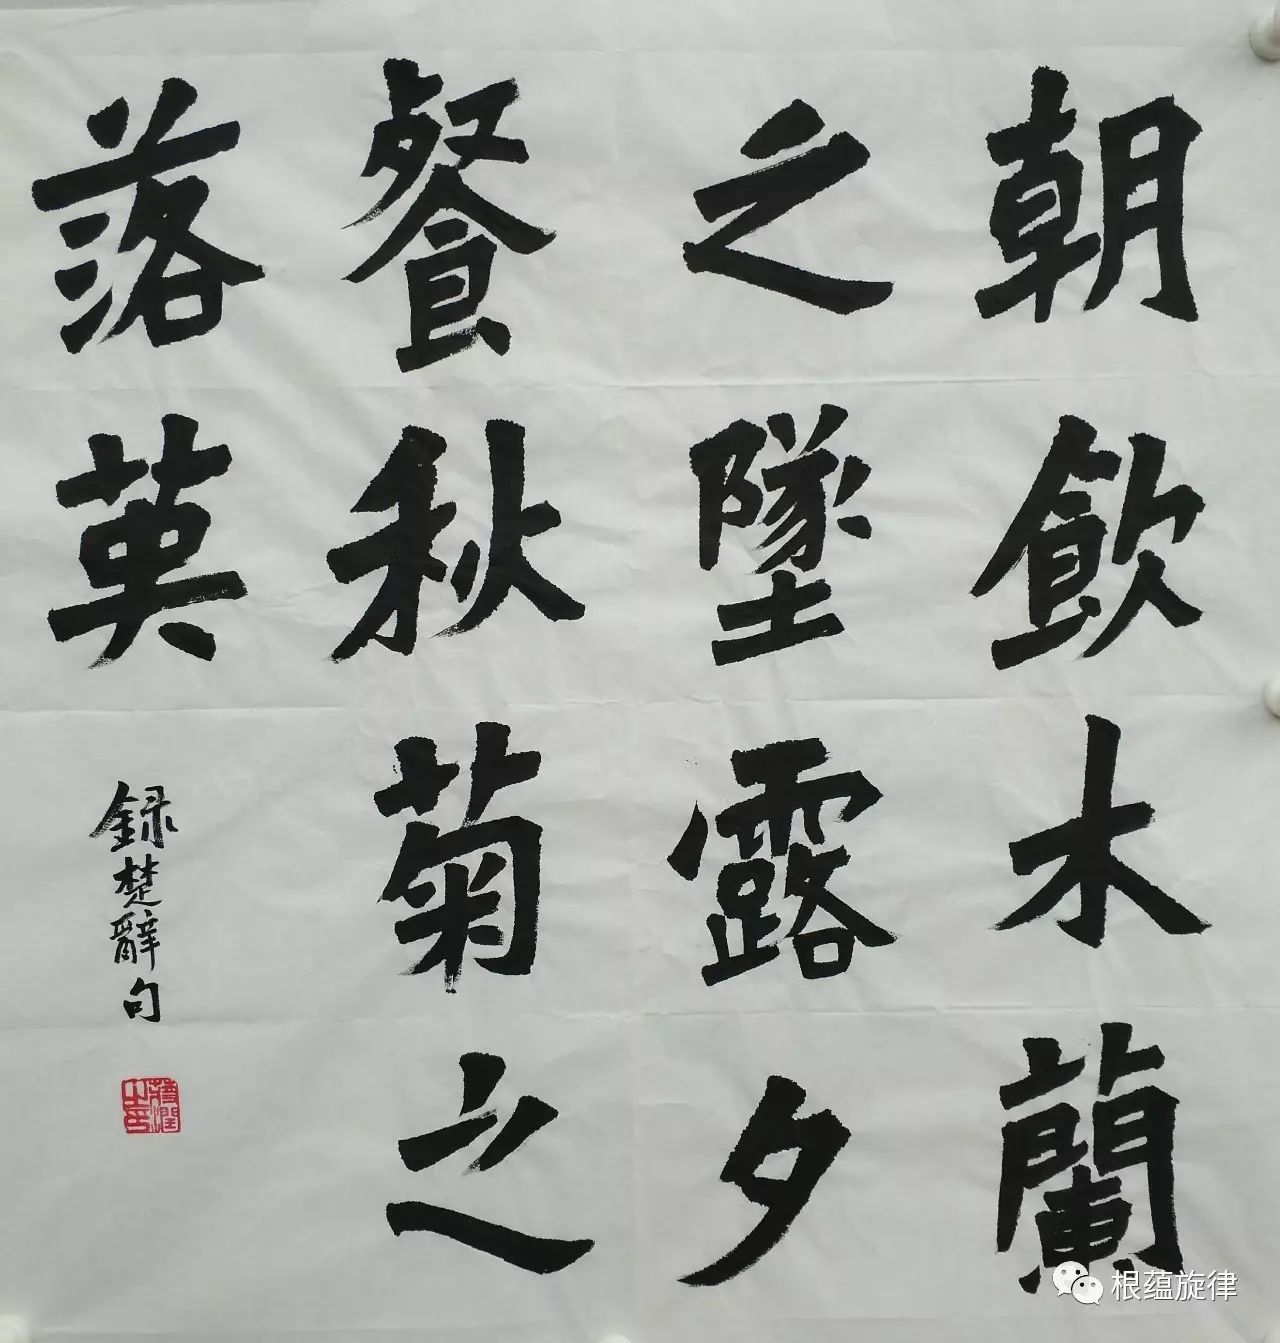 朝飲木蘭
之墜露夕
餐秋菊之
落英
録楚辭句
蔣潤之印
根蕴旋律